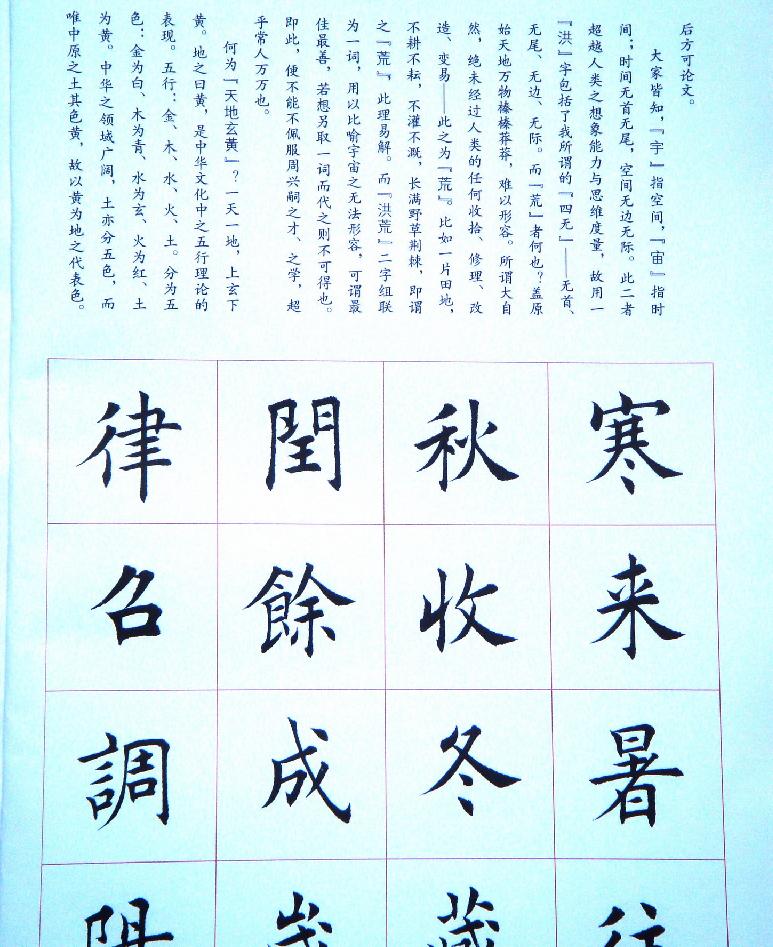 后方可论文。
大家皆知，『宇』指空间，『宙』指时
间；时间无首无尾，空间无边无际。此二者
超越人类之想象能力与思维度量，故用一
『洪』字包括了我所谓的『四无』——无首、
无尾、无边、无际。而『荒』者何也？盖原
始天地万物榛榛莽莽，难以形容。所谓大自
然，绝未经过人类的任何收拾、修理、改
造、变易——此之为『荒』。比如一片田地，
不耕不耘，不灌不溉，长满野草荆棘，即谓
之『荒』，此理易解。而『洪荒』二字组联
为一词，用以比喻宇宙之无法形容，可谓最
佳最善，若想另取一词而代之则不可得也。
即此，便不能不佩服周兴嗣之才、之学，超
乎常人万万也。
何为『天地玄黄』？一天一地，上玄下
黄。地之曰黄，是中华文化中之五行理论的
表现。五行：金、木、水、火、土。分为五
色：金为白、木为青、水为玄、火为红、土
为黄。中华之领域广阔，土亦分五色，而
唯中原之土其色黄，故以黄为地之代表色。
寒来暑往
秋收冬藏
閏餘成歲
律召調陽